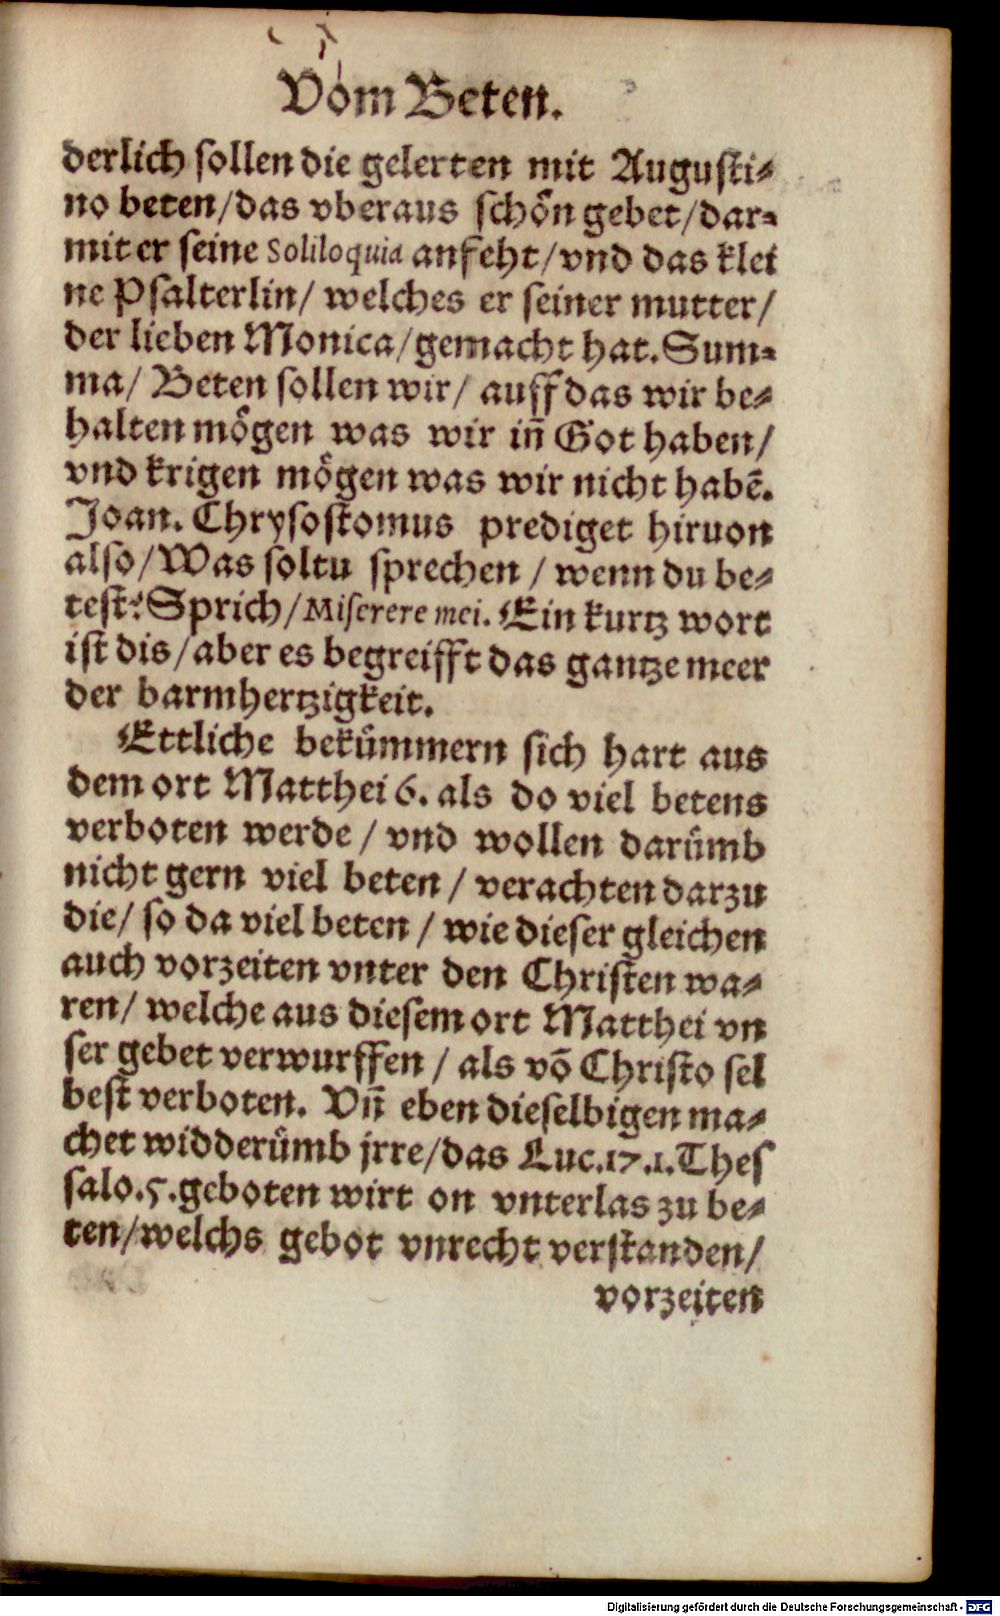 Vom Beten.
derlich sollen die gelerten mit Augusti-
no beten/das vberaus schön gebet/dar-
mit er seine Soliloquia anfeht/vnd das klei
ne Psalterlin/ welches er seiner mutter/
der lieben Monica/gemacht hat. Sum-
ma/ Beten sollen wir/ auff das wir be-
halten mögen was wir iñ Got haben/
vnd krigen mögen was wir nicht habē.
Joan. Chrysostomus prediget hiruon
also/Was soltu sprechen / wenn du be-
test? Sprich/Miserere mei. Ein kurtz wort
ist dis/aber es begreifft das gantze meer
der barmhertzigkeit.
Ettliche bekümmern sich hart aus
dem ort Matthei 6. als do viel betens
verboten werde / vnd wollen darümb
nicht gern viel beten / verachten darzu
die/ so da viel beten / wie dieser gleichen
auch vorzeiten vnter den Christen wa-
ren/ welche aus diesem ort Matthei vn
ser gebet verwurffen / als vō Christo sel
best verboten. Vñ eben dieselbigen ma-
chet widderümb jrre/das Luc.17.1.Thes
salo.5.geboten wirt on vnterlas zu be-
ten/welchs gebot vnrecht verstanden/
vorzeiten
Digitalisierung gefördert durch die Deutsche Forschungsgemeinschaft - DFG